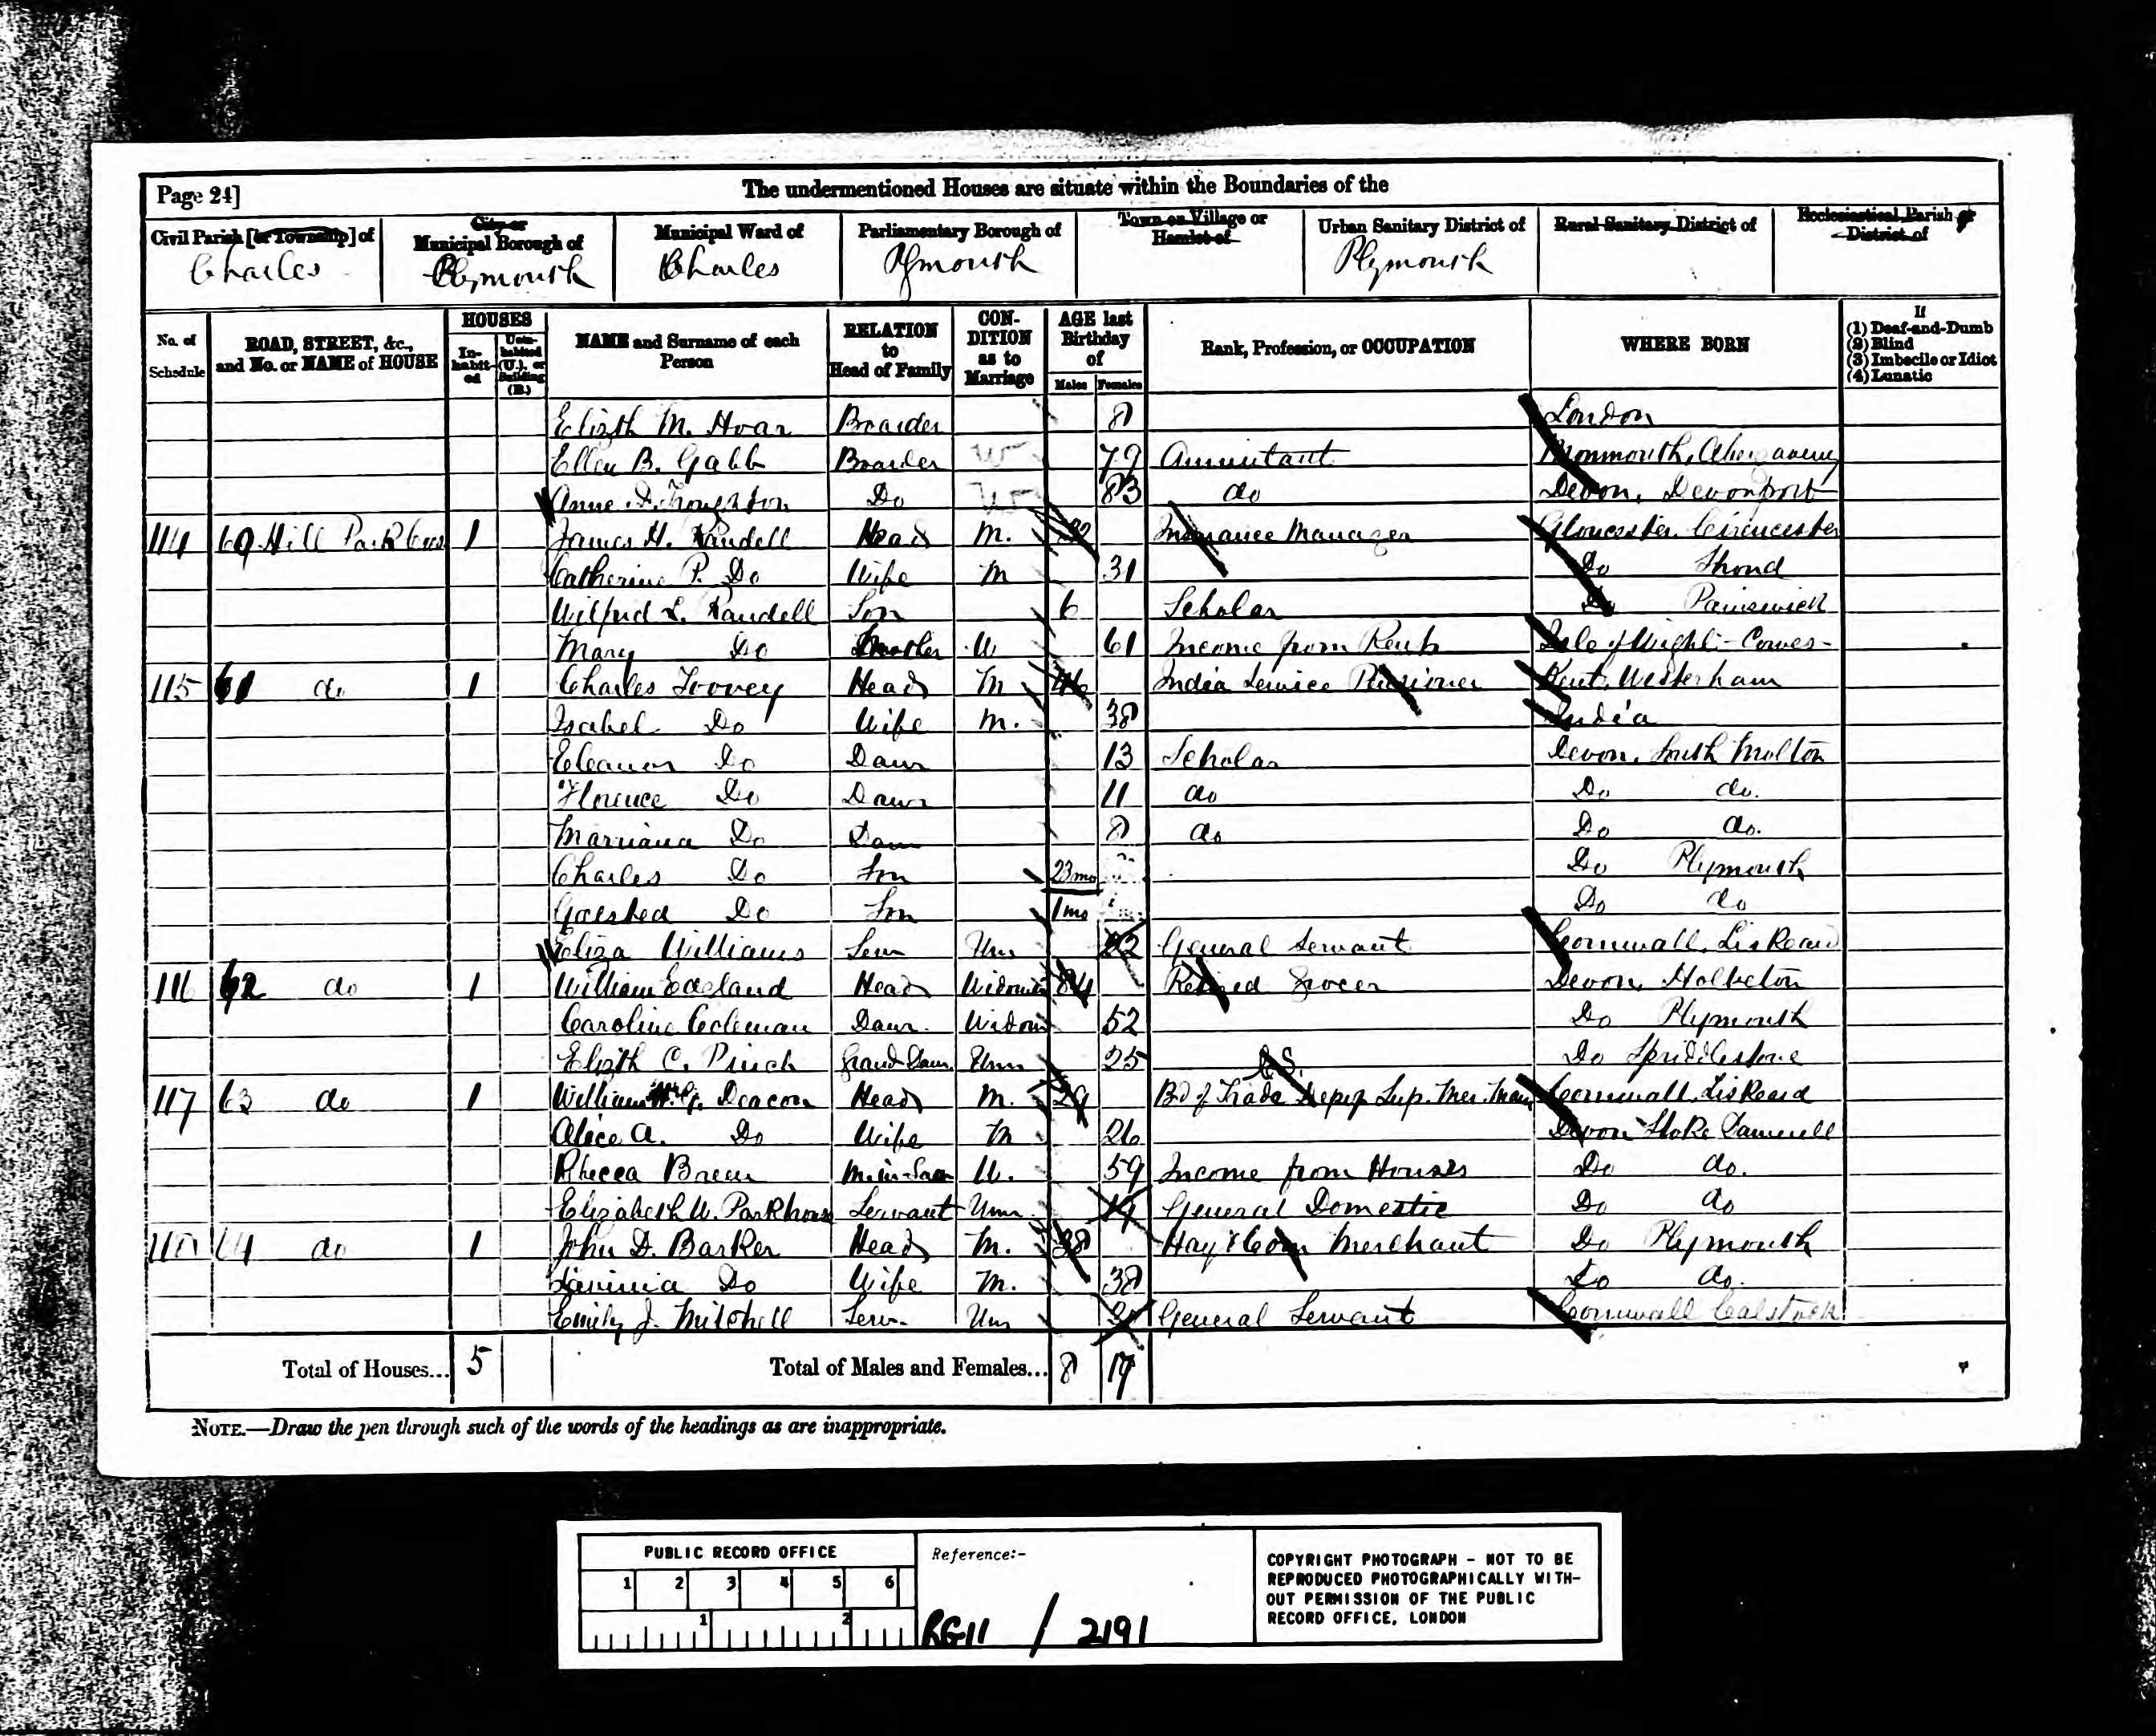 Page 24]
The undermentioned Houses are situate within the Boundaries of the
Civil Parish [or Township] of
City or Municipal Borough of
Municipal Ward of
Parliamentary Borough of
Town or Village or Hamlet of
Urban Sanitary District of
Rural Sanitary District of
Ecclesiastical Parish or District of
Charles Plymouth Charles Plymouth Plymouth
No. of Schedule
ROAD, STREET, &c., and No. or NAME of HOUSE
HOUSES
In-habit-ed
Unin-habited (U.), or Building (B.)
NAME and Surname of each Person
RELATION to Head of Family
CON-DITION as to Marriage
AGE last Birthday of
Males Females
Rank, Profession, or OCCUPATION
WHERE BORN
If
(1) Deaf-and-Dumb
(2) Blind
(3) Imbecile or Idiot
(4) Lunatic
Elizth M. Hoar Boarder 8 London
Ellen B. Gabb Boarder W 79 Annuitant Monmouth, Abergavenny
Anne Do 83 do Devon, Devonport
114 60 Hill Park 1 James H. Randell Head M. 32 Insurance Manager Gloucester. Cirencester
Catherine P. Do Wife M 31 Do
Wilfrid L. Randell Son 6 Scholar Do Painswick
Mary Do Mother W 61 Income from Isle of Wight - Cowes -
115 61 do 1 Charles Toovey Head M 46 India Service Pensioner Kent, Westerham
Isabel Do Wife M. 38 India
Eleanor Do Daur 13 Scholar Devon, South Molton
Florence Do Daur 11 do Do do.
Marriana Do Daur 8 do Do do.
Charles Do Son 23mo Do Plymouth
Do Son 1mo Do do
Eliza Williams Serv Unm 22 General Servant Cornwall, Liskeard
116 62 do 1 William Head Widower 84 Retired Grocer Devon, Holbeton
Caroline Coleman Daur. Widow 52 Do Plymouth
Elizth C. Pinch Grand-Daur. Unm 25 Do Spriddlestone
C.S.
117 63 do 1 William Deacon Head M. 29 Bd of Trade Sup. Mer. Cornwall, Liskeard
Alice A. Do Wife M 26 Devon Stoke Damerell
Rbecca M.-in-Law W. 59 Income from Houses Do do.
Elizabeth W. Parkhouse Servant Unm. 19 General Domestic Do do
118 64 do 1 John D. Barker Head M. 38 Hay & Corn Merchant Do Plymouth
Lavinia Do Wife M. 38 Do do.
Emily J. Mitchell Serv. Unm General Servant Cornwall Calstock
Total of Houses... 5 Total of Males and Females... 8 17
NOTE.—Draw the pen through such of the words of the headings as are inappropriate.
PUBLIC RECORD OFFICE
1 2 3 4 5 6
1 2
Reference:-
RG11 / 2191
COPYRIGHT PHOTOGRAPH - NOT TO BE
REPRODUCED PHOTOGRAPHICALLY WITH-
OUT PERMISSION OF THE PUBLIC
RECORD OFFICE, LONDON